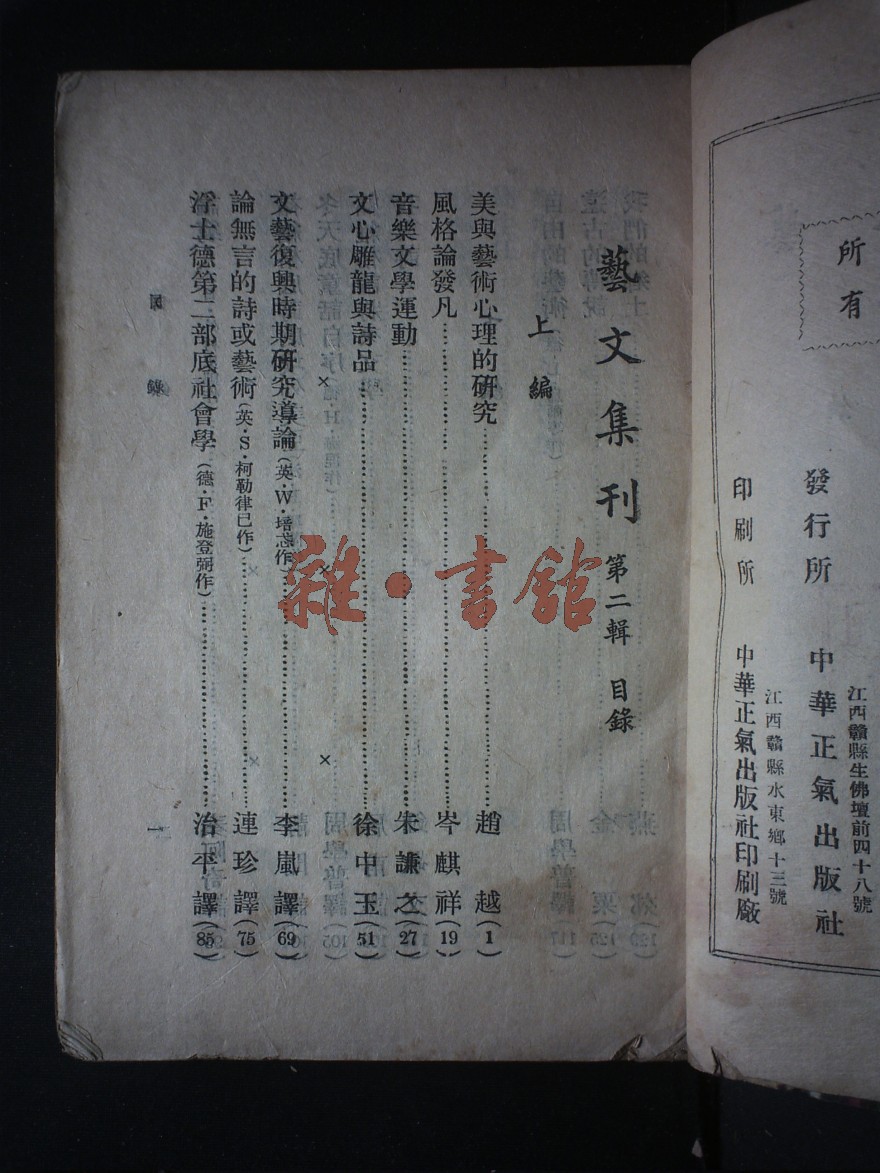 所有
發行所　中華正氣出版社
江西贛縣生佛壇前四十八號
印刷所　中華正氣出版社印刷廠
江西贛縣水東鄉十三號
藝文集刊　第二輯　目錄
上編
美與藝術心理的研究…………趙越(1)
風格論發凡…………岑麒祥(19)
音樂文學運動…………朱謙之(27)
文心雕龍與詩品…………徐中玉(51)
文藝復興時期研究導論(英·W·)…………李嵐譯(69)
論無言的詩或藝術(英·S·柯勒律己作)…………連珍譯(75)
浮士德第二部底社會學(德·F·施登弼作)…………治平譯(85)
目錄
一
雜·書館